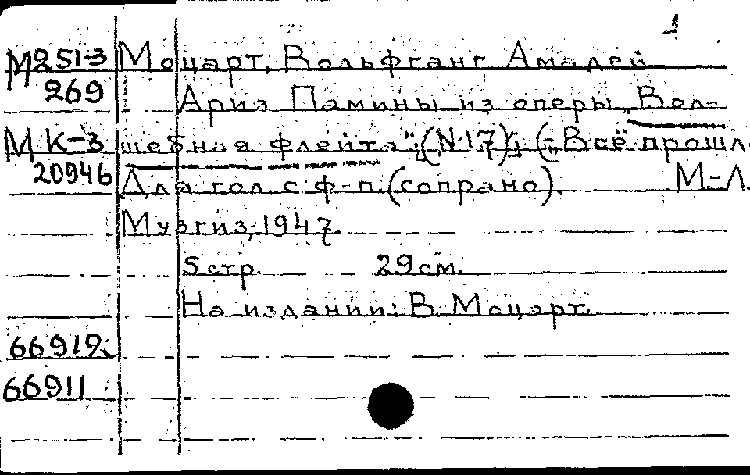 1
М251-3 Моцарт, Вольфганг Амадей
269 Ария Памины из оперы „Вол-
МК-3 шебная флейта" (№17) („Всё прошл
20946 Для гол. с ф-п. (сопрано). М-Л.
Музгиз, 1947.
5 стр. 29 см.
На издании: В. Моцарт.
66912
66911